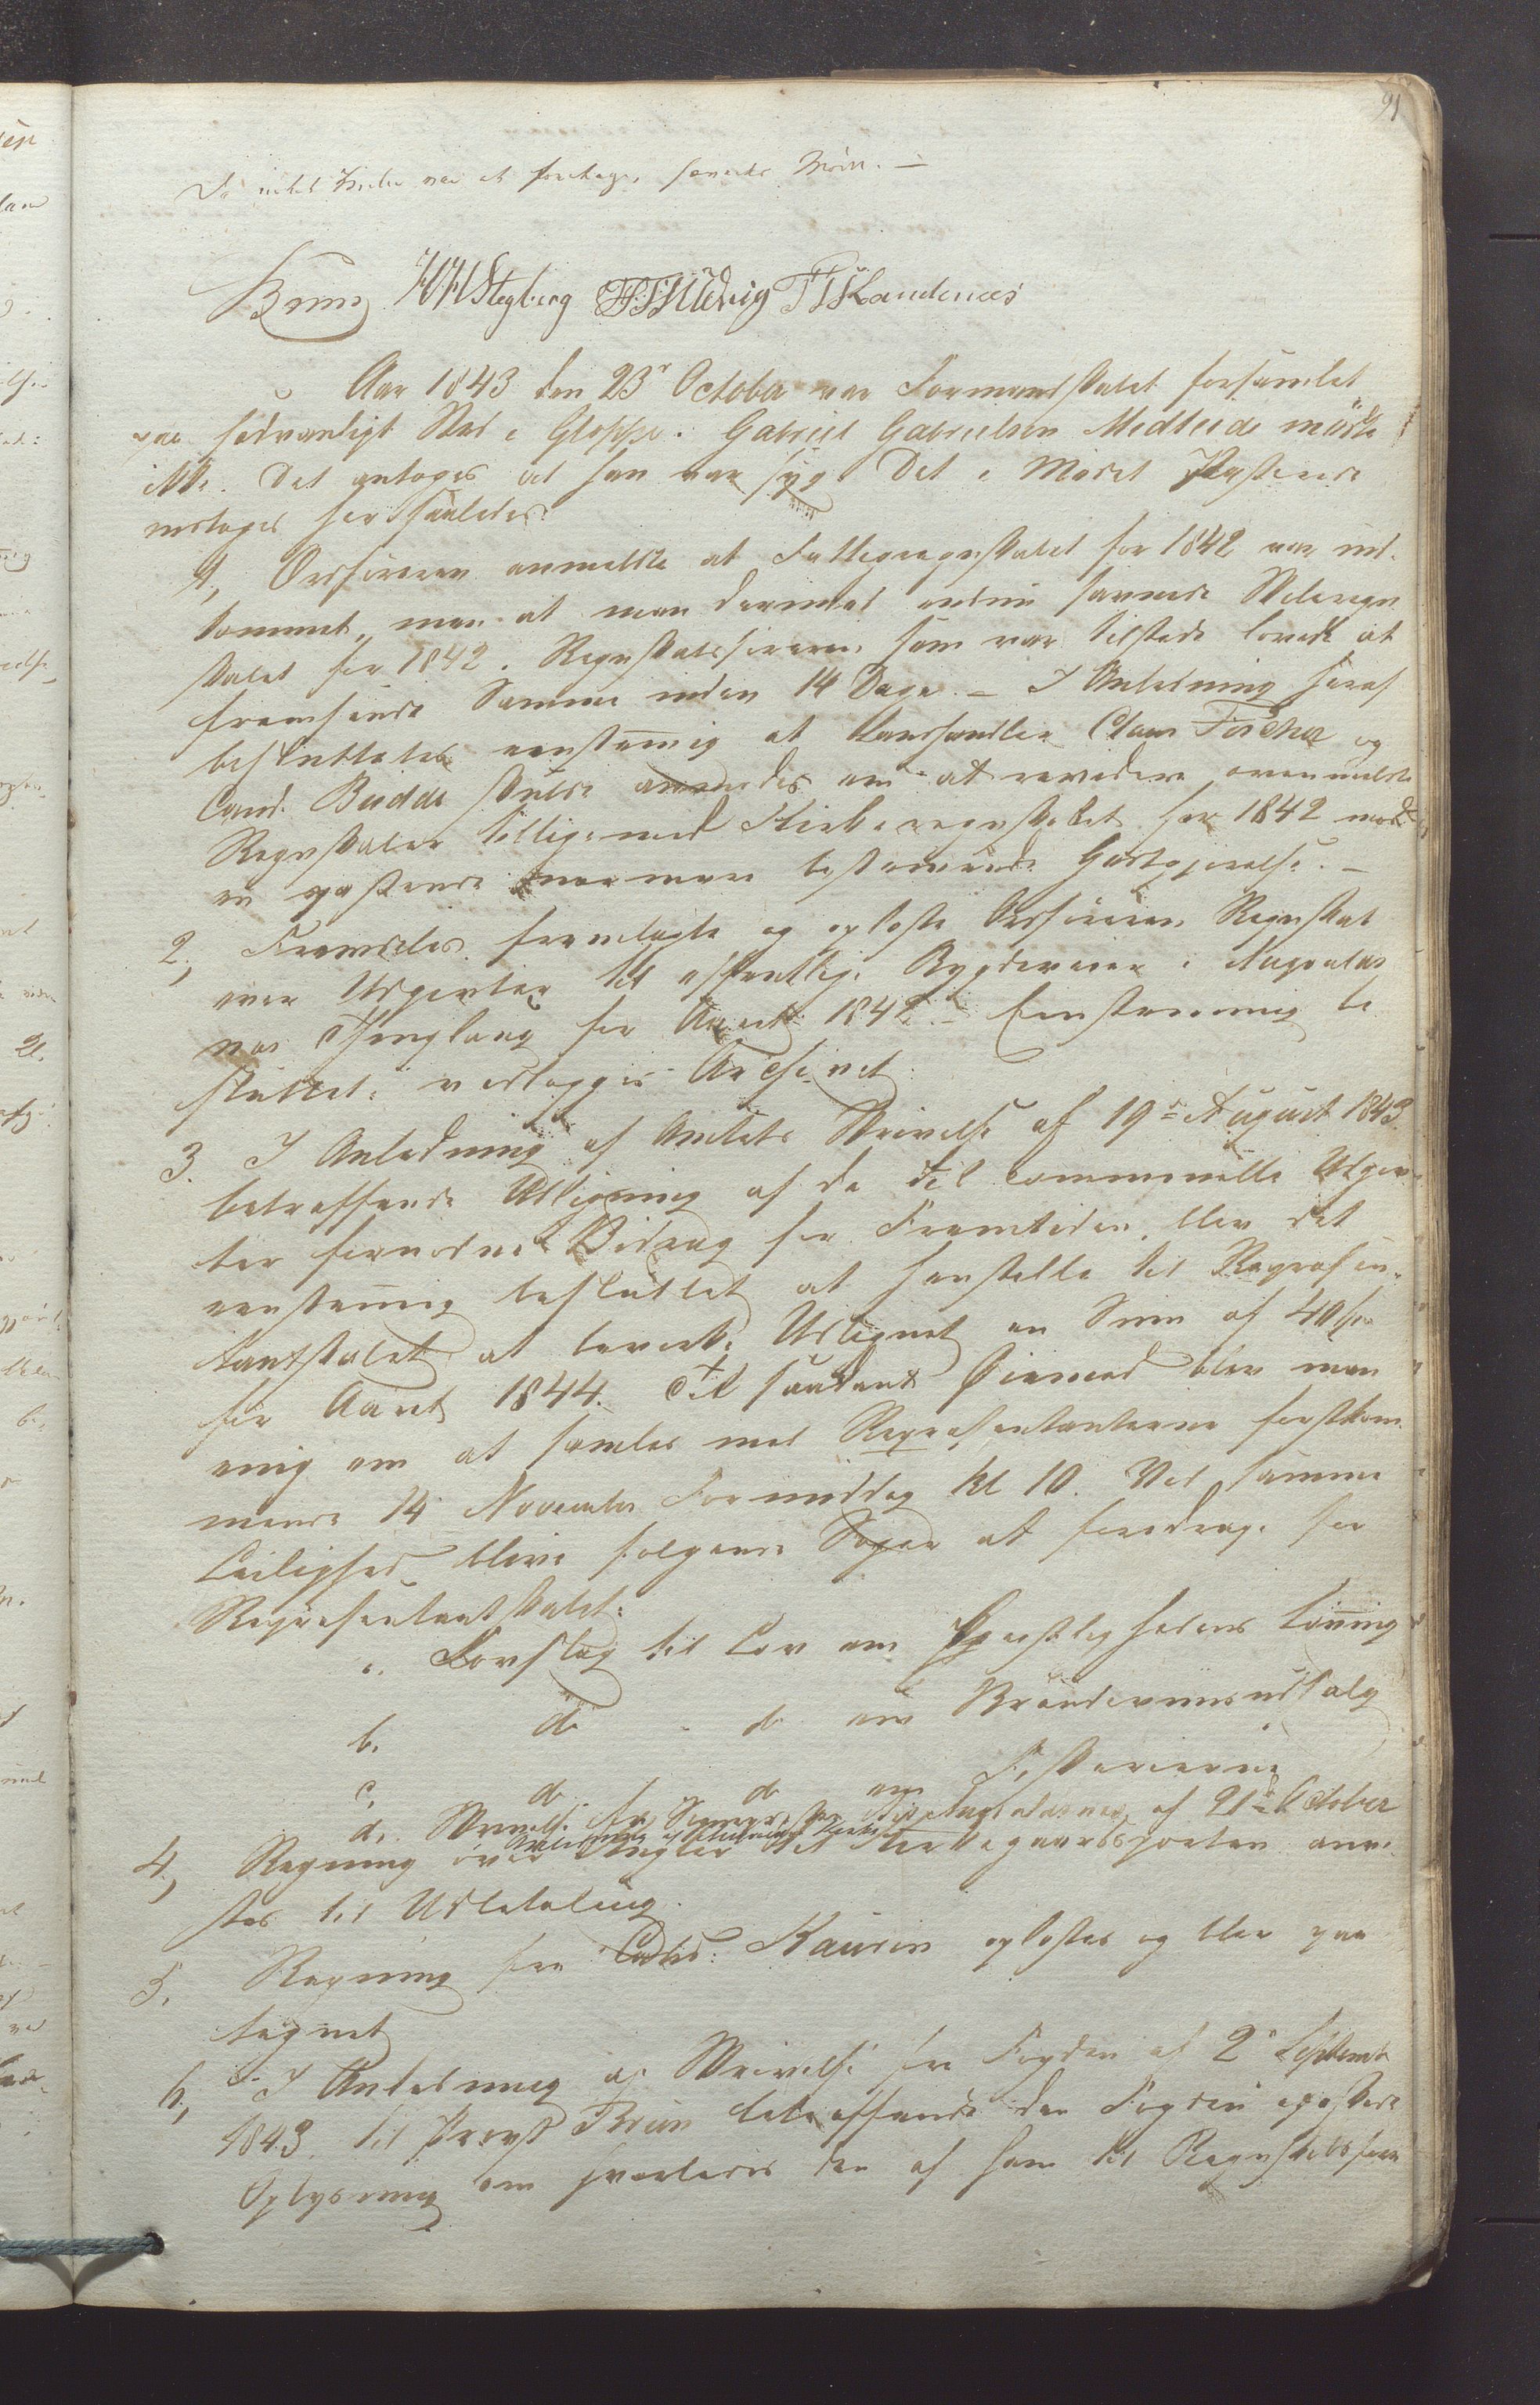 91
Da intet Videre var at foretage, hævedes Mødet. —
Brun HHStegberg TTHüevig TTSandenæs
Aar 1843 den 23de October var Formandskabet forsamlet
paa sædvanligt Sted i Gloppe. Gabriel Gabrielsen Medleide mødte
ikke. Det antoges at han var syg. Det i Mødet Passerede
modtages her saaledes:
1, Ordføreren anmeldte at Fattigregnskabet for 1842 var ind-
kommet, men at man dermed endnu savnede Skoleregn
skabet for 1842. Regnskabsføreren som var tilstede lovede at
fremsende Samme inden 14 Dage. — I Anledning heraf
besluttedes eenstemmig at Landhandler Claus Fischer og
Cand. Budde skulde anmodes om at revidere ovenmeldte
Regnskaber tilligemed Kirkeregnskabet for 1842 mod
en passende nærmere bestemmende Godtgjørelse. —
2, Fremdeles fremlagte og oplæste Ordføreren Regnskab
over Udgivter til offentlige Bygdeveie i Augvalds
næs Thinglaug for Aaret 1842. — Eenstemmig be
sluttet: vedlægges Archivet.
3. I Anledning af Amtets Skrivelse af 19de August 1843
betreffende Udligning af de til communelle Udgiv-
ter fornødne Bidrag for Fremtiden, blev det
eenstemmig besluttet at henstille til Repræsen-
tantskabet at beværke Udlignet en Sum af 40
for Aaret 1844. Til saadant Øiemed blev man
enig om at samles med Repræsentanterne førstkom-
mende 14 November Formiddag Kl 10. Ved samme
Leilighed blive følgende Sager at foredrage for
Repræsentantskabet:
a. Lovslag til Lov om Geistlighedens Lønning
b. do - do om Brændeviinsudsalg
c, do - do om Fiskerierne
d. Skrivelse fra Sognepræsten til Augvaldsnæs af 21de October
4, Regning over Nøgler til Kirkegaardsporten anvi-
stes til Udbetaling.
5. Regning fra Cand: Kaurin oplæstes og blev paa
tegnet
6, I Anledning af Skrivelse fra Fogden af 2de Septembr
1843 til Provst Brun betreffende den Fogden æskede
Oplysning om hvorledes den af ham til Regnskabsføre